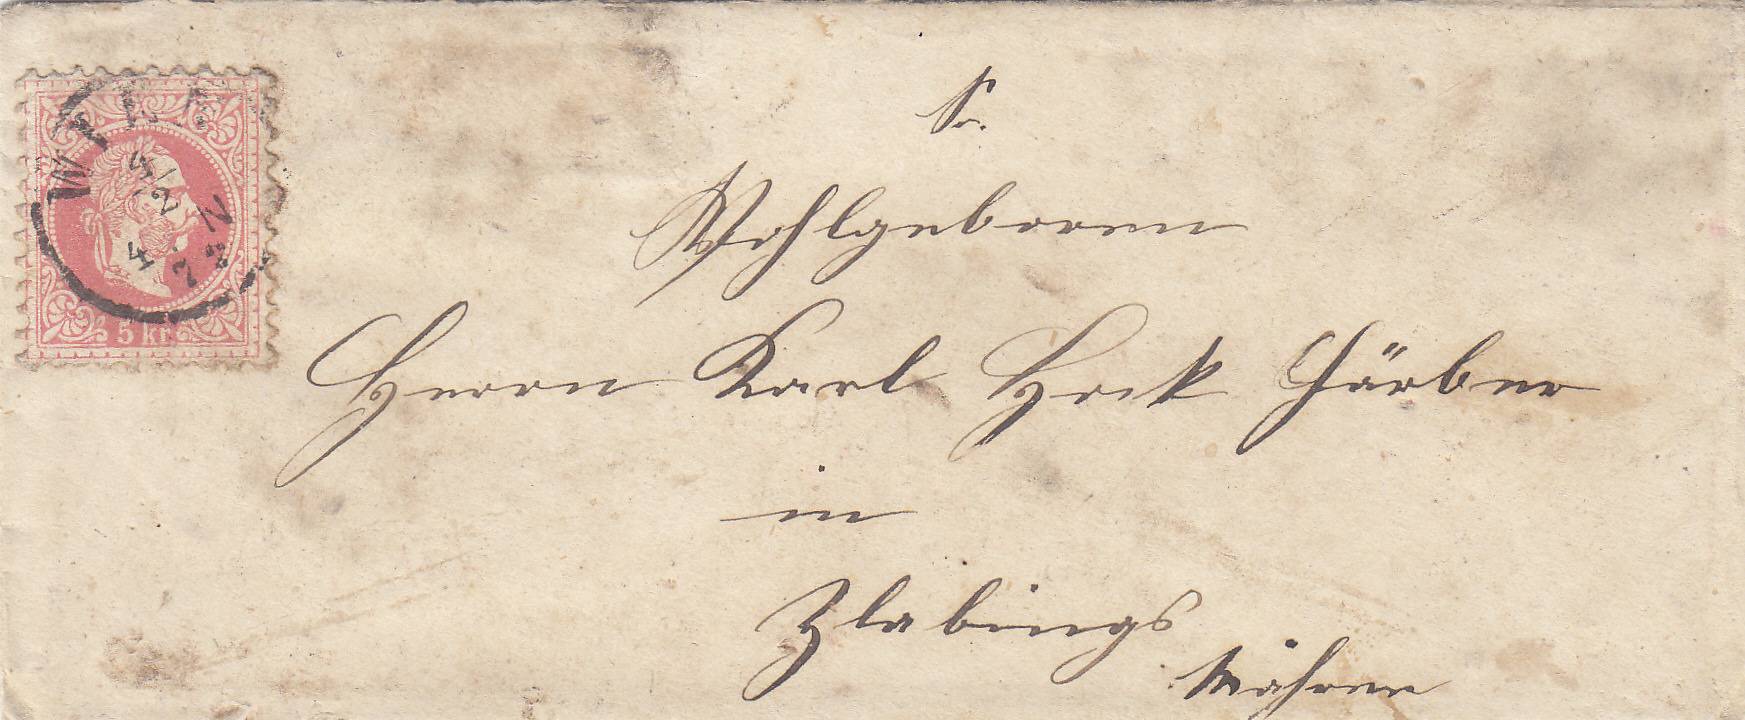 WIEN
5 kr
Sr.
Wohlgeboren
Herrn Karl Hock Färber
in
Zlabings
Mähren